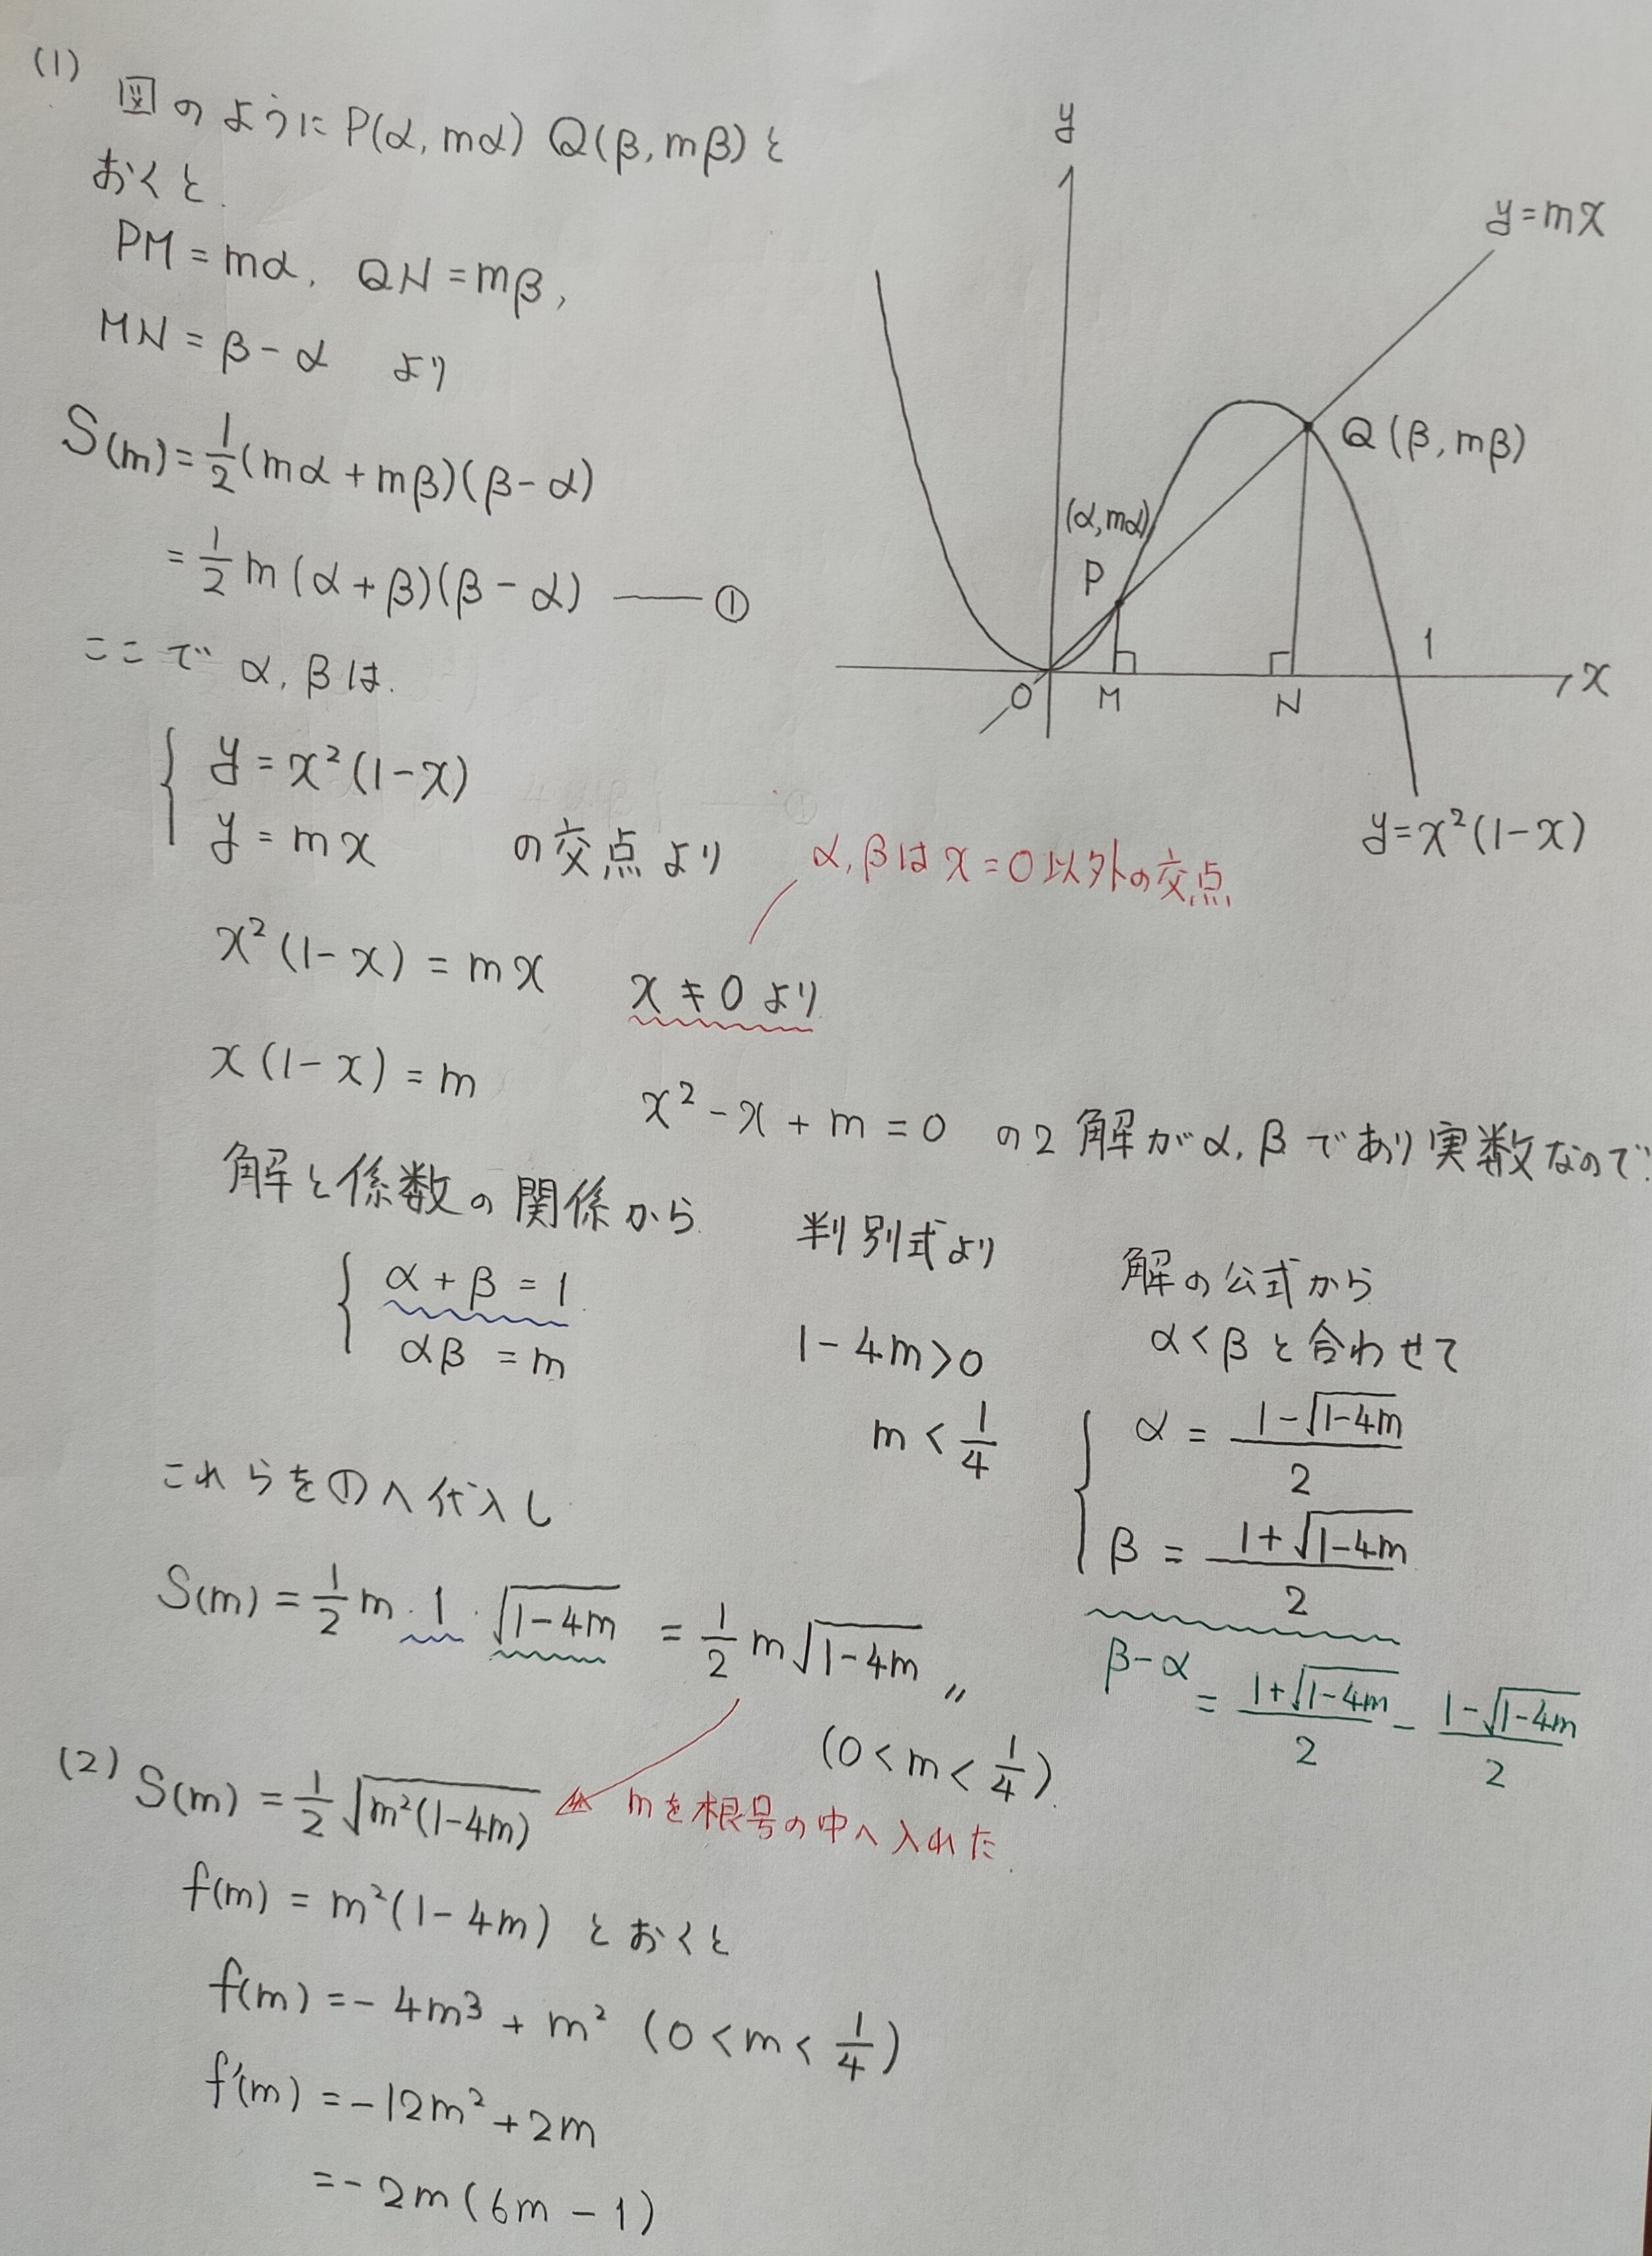 (1)
図のようにP(α, mα) Q(β, mβ)と
おくと.
PM = mα, QN = mβ,
MN = β - α より
S(m) = 1/2 (mα + mβ)(β - α)
= 1/2 m (α + β)(β - α) ―― ①
ここで α, βは.
{ y = x²(1-x)
y = mx の交点より
α, βはx=0以外の交点
x²(1-x) = mx x≠0より
x(1-x) = m
x² - x + m = 0 の2解がα, βであり実数なので
解と係数の関係から
{ α + β = 1
αβ = m
判別式より
1 - 4m > 0
m < 1/4
解の公式から
α < β と合わせて
{ α = (1 - √(1-4m))/2
β = (1 + √(1-4m))/2
β - α
= (1 + √(1-4m))/2 - (1 - √(1-4m))/2
これらを①へ代入し
S(m) = 1/2 m · 1 · √(1-4m) = 1/2 m√(1-4m) 〃
(0 < m < 1/4)
(2) S(m) = 1/2 √(m²(1-4m))
mを根号の中へ入れた.
f(m) = m²(1-4m) とおくと
f(m) = -4m³ + m² (0 < m < 1/4)
f'(m) = -12m² + 2m
= -2m(6m - 1)
y
y = mx
Q(β, mβ)
(α, mα)
P
1
O M N x
y = x²(1-x)